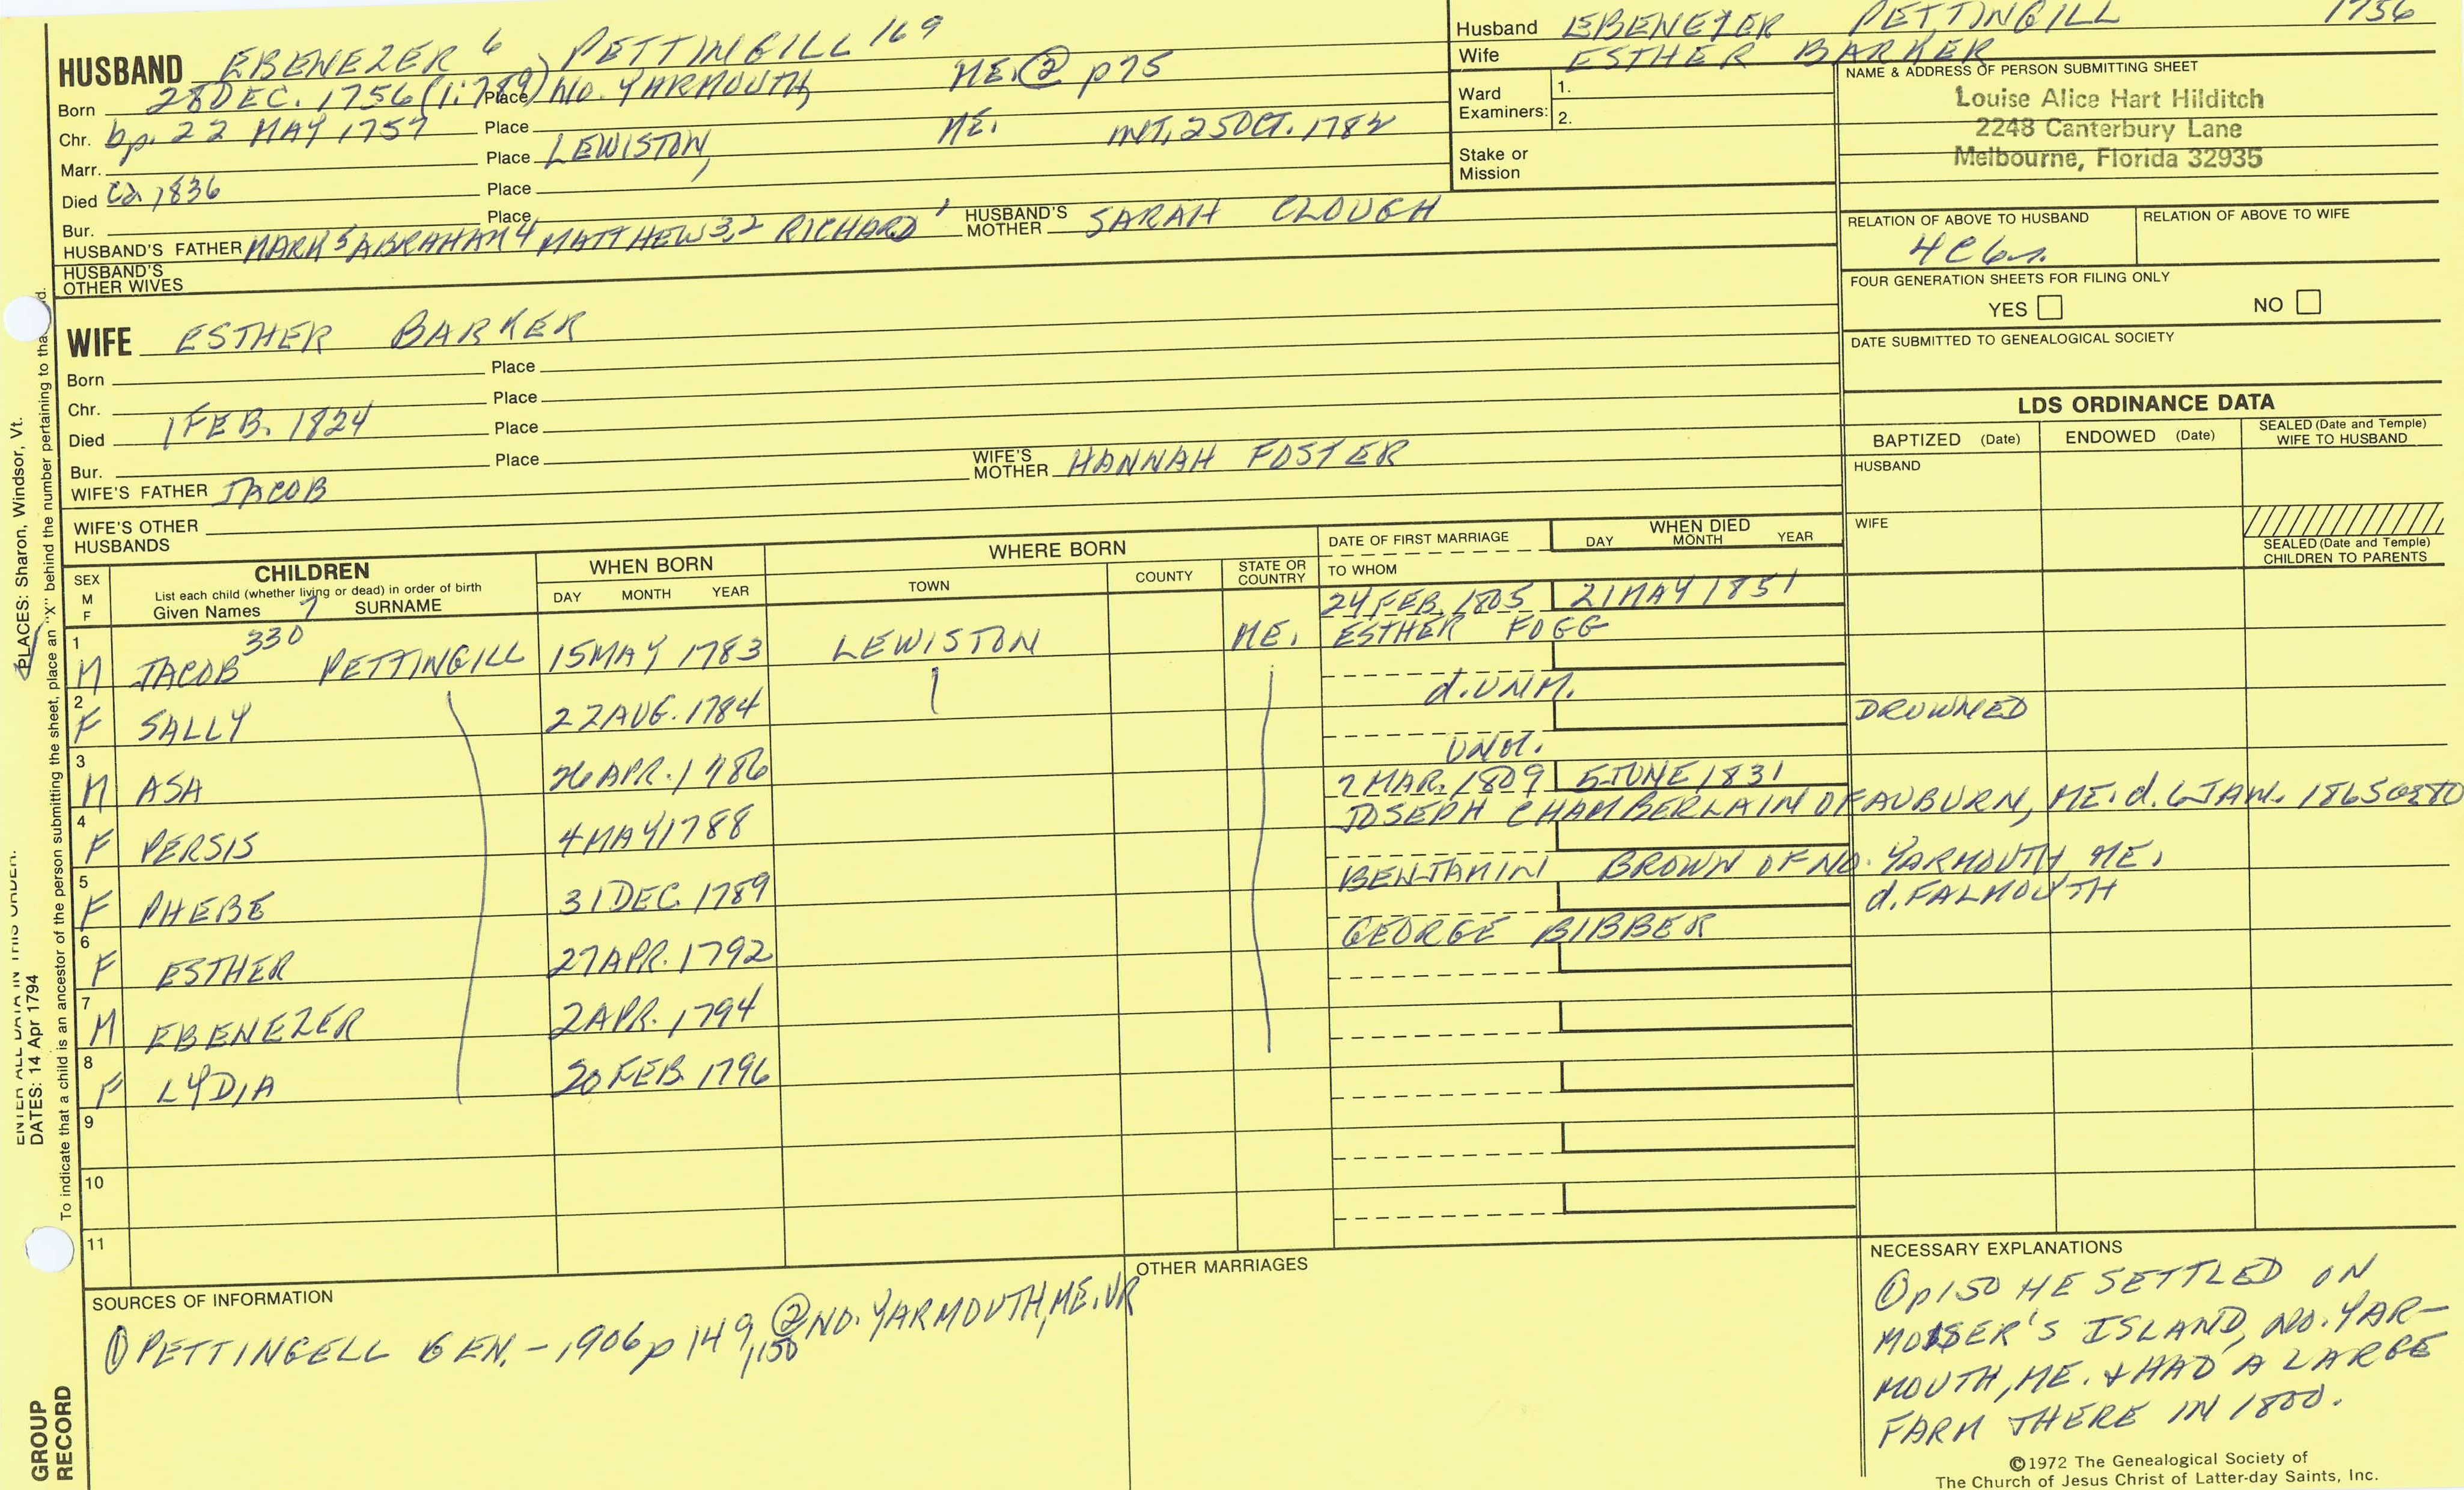 HUSBAND EBENEZER 6 PETTINGILL 169
Born 28 DEC. 1756 (1:789) Place NO. YARMOUTH, ME. ② p75
Chr. bp. 22 MAY 1757 Place
Marr. Place LEWISTON, ME. INT. 25 OCT. 1782
Died Ca 1836 Place
Bur. Place
HUSBAND'S FATHER MARK 5 ABRAHAM 4 MATTHEW 3,2 RICHARD 1 HUSBAND'S MOTHER SARAH CLOUGH
HUSBAND'S OTHER WIVES
Husband EBENEZER PETTINGILL 1756
Wife ESTHER BARKER
Ward Examiners: 1.
2.
Stake or Mission
NAME & ADDRESS OF PERSON SUBMITTING SHEET
Louise Alice Hart Hilditch
2248 Canterbury Lane
Melbourne, Florida 32935
RELATION OF ABOVE TO HUSBAND RELATION OF ABOVE TO WIFE
4C6r.
FOUR GENERATION SHEETS FOR FILING ONLY
YES NO
DATE SUBMITTED TO GENEALOGICAL SOCIETY
WIFE ESTHER BARKER
Born Place
Chr. Place
Died 1 FEB. 1824 Place
Bur. Place
WIFE'S FATHER JACOB WIFE'S MOTHER HANNAH FOSTER
WIFE'S OTHER HUSBANDS
LDS ORDINANCE DATA
BAPTIZED (Date) ENDOWED (Date) SEALED (Date and Temple) WIFE TO HUSBAND
HUSBAND
WIFE
SEALED (Date and Temple) CHILDREN TO PARENTS
SEX M F
CHILDREN
List each child (whether living or dead) in order of birth
Given Names 7 SURNAME
WHEN BORN
DAY MONTH YEAR
WHERE BORN
TOWN COUNTY STATE OR COUNTRY
DATE OF FIRST MARRIAGE
TO WHOM
WHEN DIED
DAY MONTH YEAR
1 M JACOB 330 PETTINGILL 15 MAY 1783 LEWISTON ME. 24 FEB. 1805 21 MAY 1851
ESTHER FOGG
2 F SALLY 22 AUG. 1784 d. UNM. DROWNED
3 M ASA 26 APR. 1786 UNM.
4 F PERSIS 4 MAY 1788 7 MAR. 1809 5 JUNE 1831
JOSEPH CHAMBERLAIN OF AUBURN, ME. d. 6 JAN. 1865 @ 80
5 F PHEBE 31 DEC. 1789 BENJAMIN BROWN OF NO. YARMOUTH ME.
d. FALMOUTH
6 F ESTHER 27 APR. 1792 GEORGE BIBBER
7 M EBENEZER 2 APR. 1794
8 F LYDIA 20 FEB. 1796
9
10
11
SOURCES OF INFORMATION
① PETTINGELL GEN. - 1906 p 149, 150 ② NO. YARMOUTH, ME. VR
OTHER MARRIAGES
NECESSARY EXPLANATIONS
① p150 HE SETTLED ON
MOSER'S ISLAND, NO. YAR-
MOUTH, ME. & HAD A LARGE
FARM THERE IN 1800.
©1972 The Genealogical Society of
The Church of Jesus Christ of Latter-day Saints, Inc.
GROUP RECORD
ENTER ALL DATA IN THIS ORDER:
DATES: 14 Apr 1794
PLACES: Sharon, Windsor, Vt.
To indicate that a child is an ancestor of the person submitting the sheet, place an "X" behind the number pertaining to tha d.